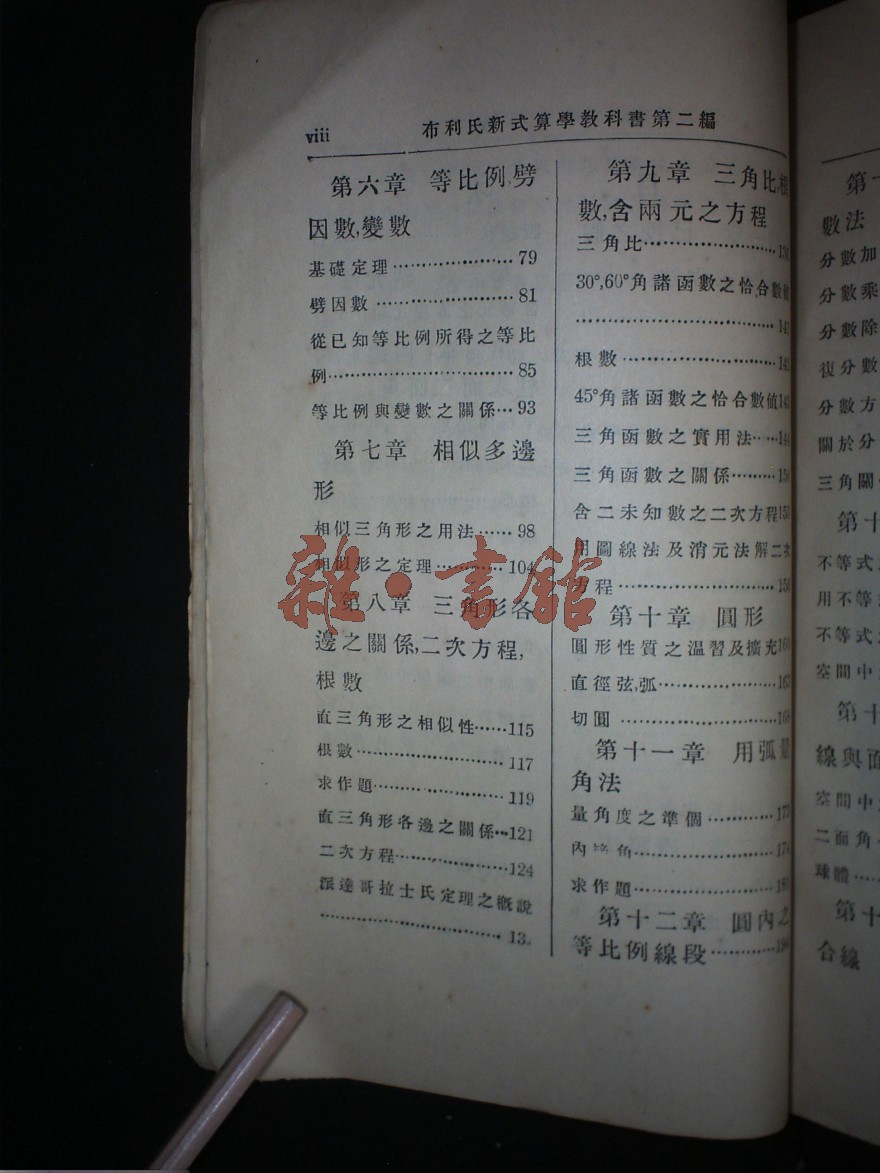 viii
布利氏新式算學教科書第二編
第六章 等比例,劈
因數,變數
基礎定理…………………79
劈因數……………………81
從已知等比例所得之等比
例…………………………85
等比例與變數之關係…93
第七章 相似多邊
形
相似三角形之用法……98
相似形之定理…………104
第八章 三角形各
邊之關係,二次方程,
根數
直三角形之相似性……115
根數……………………117
求作題…………………119
直三角形各邊之關係…121
二次方程………………124
派達哥拉士氏定理之概說
…………………………13
第九章 三角比,根
數,含兩元之方程
三角比…………………
30°,60°角諸函數之恰合數值
…………………………
根數……………………
45°角諸函數之恰合數值
三角函數之實用法……
三角函數之關係………
含二未知數之二次方程
用圖線法及消元法解二次
方程……………………
第十章 圓形
圓形性質之溫習及擴充
直徑弦,弧………………
切圓……………………
第十一章 用弧量
角法
量角度之準個…………
內 角…………………
求作題…………………
第十二章 圓內之
等比例線段…………
第十
數法
分數加
分數乘
分數除
復分數
分數方
關於分
三角關
第十
不等式
用不等
不等式
空間中
第十
線與面
空間中
二面角
球體……
第十
合線
雜·書館